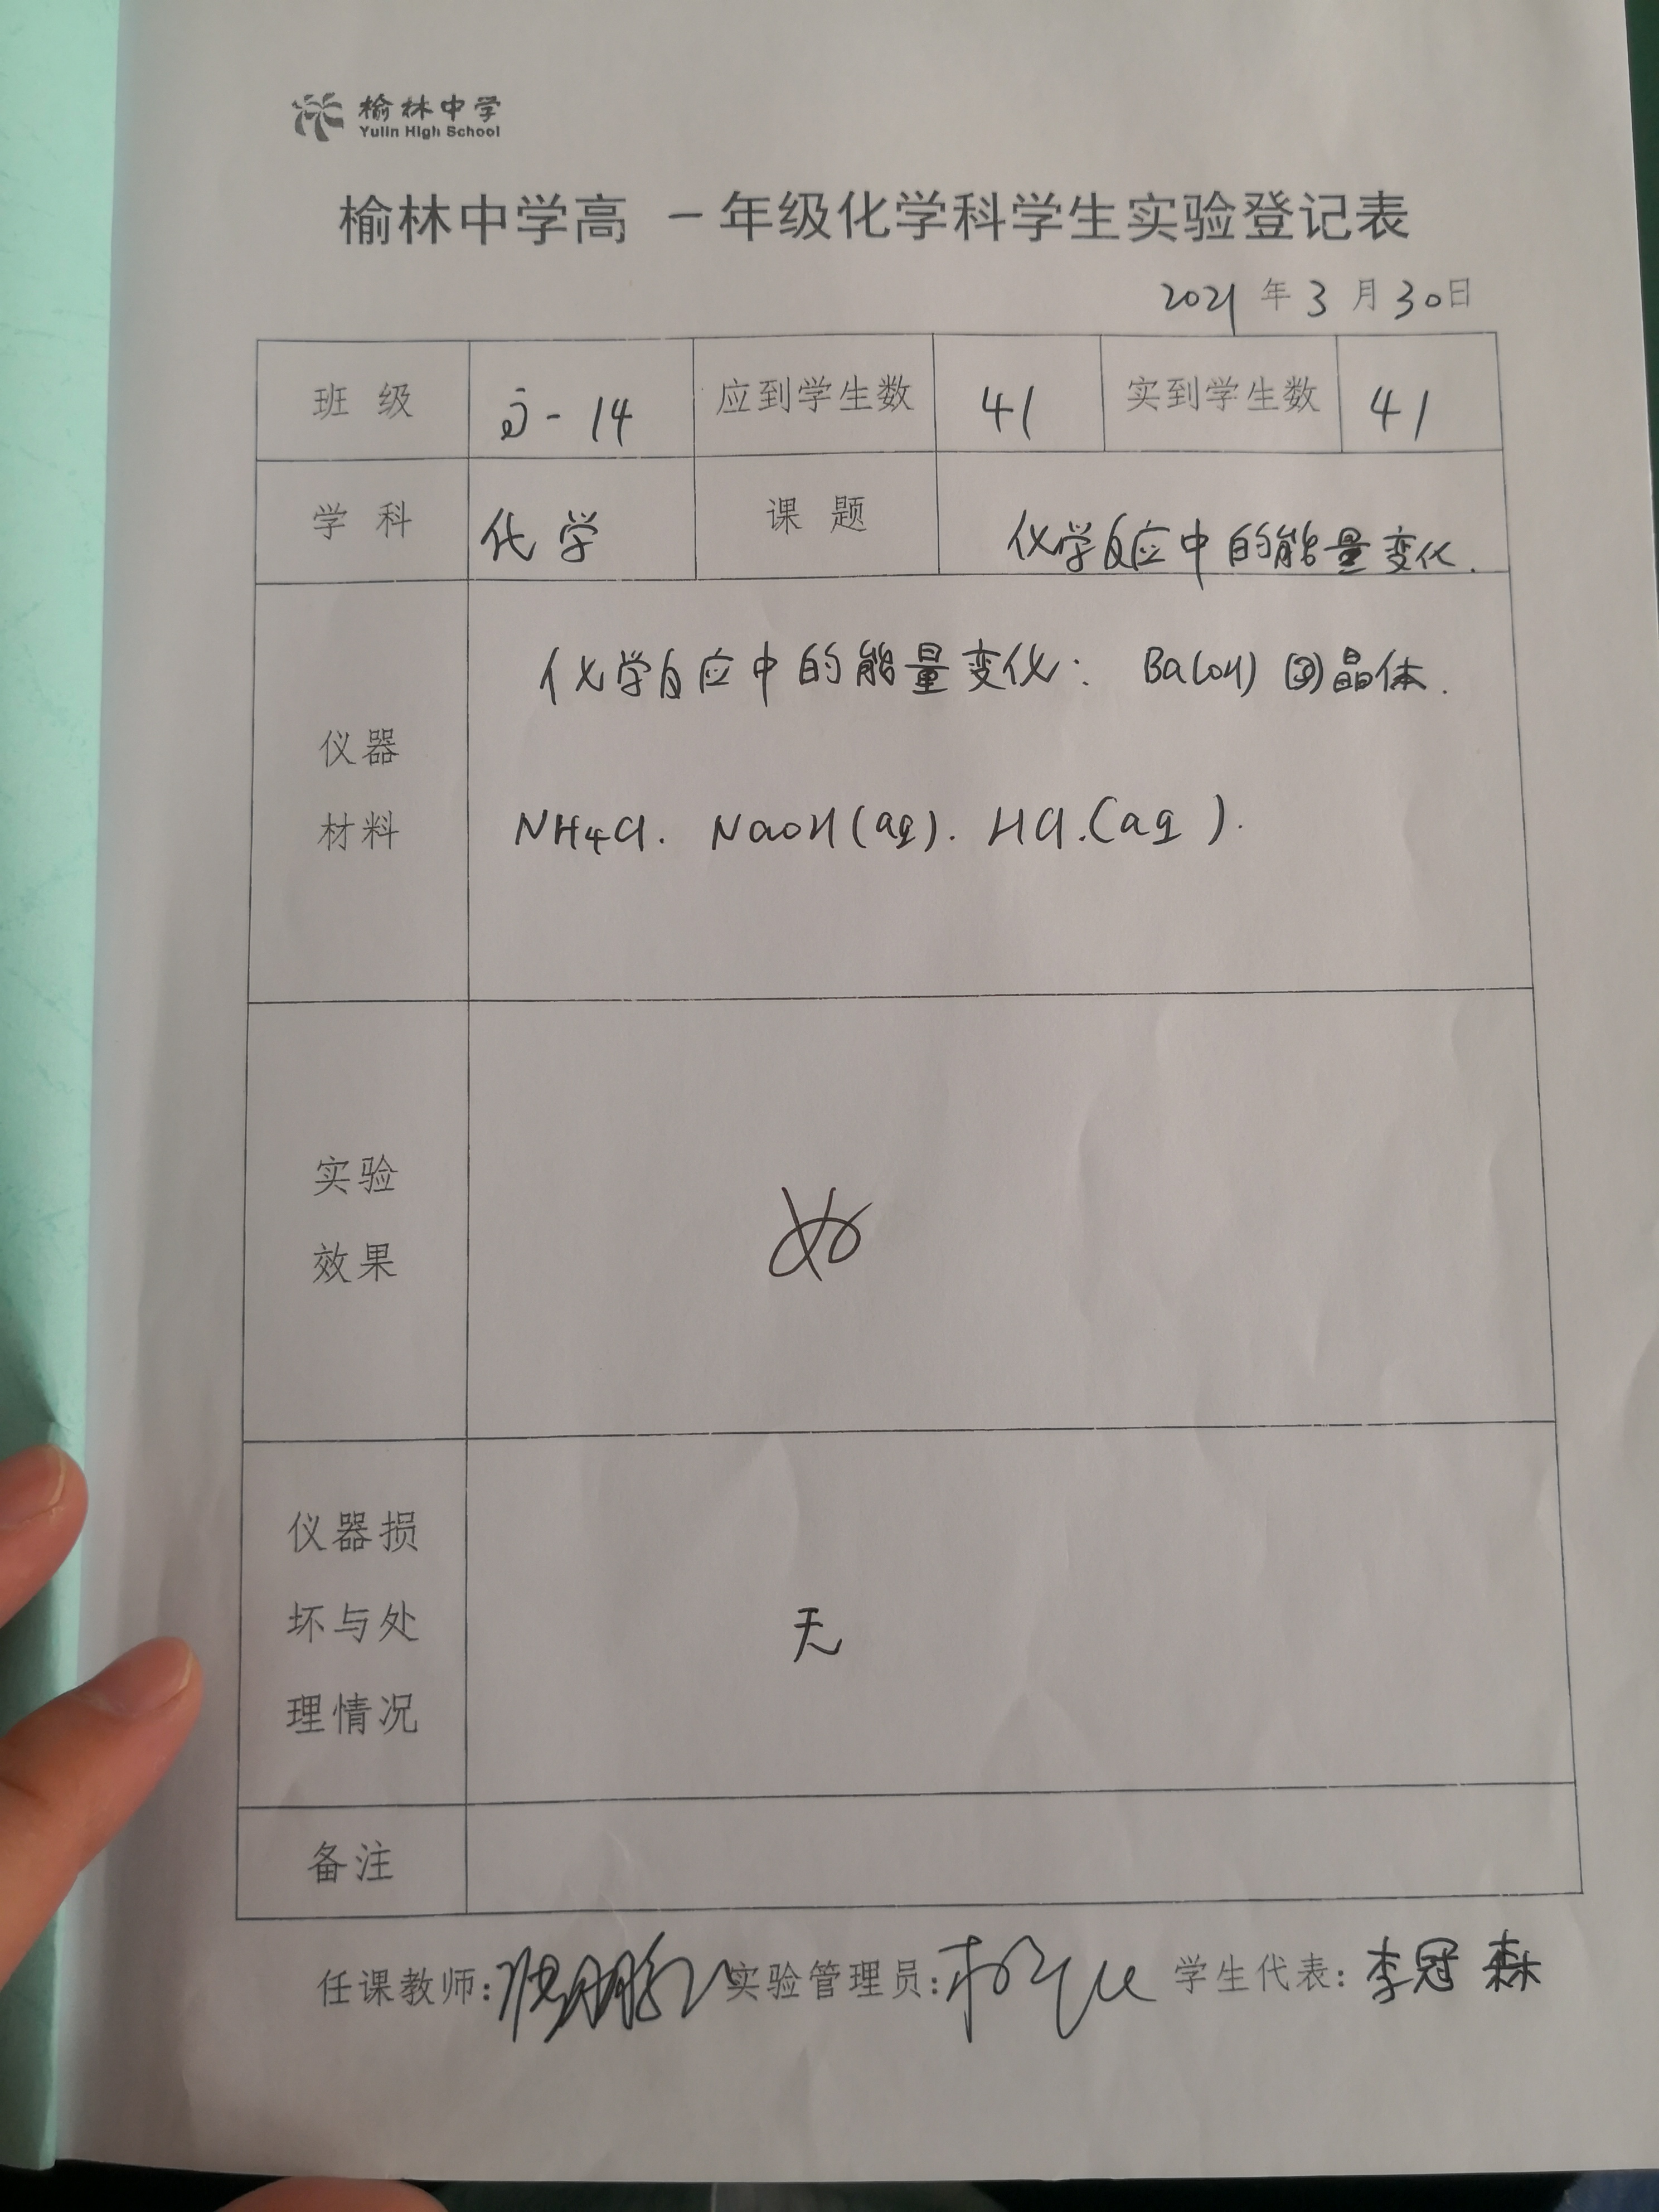 榆林中学
Yulin High School
榆林中学高 一年级化学科学生实验登记表
2021 年 3 月 30 日
班 级 高-14 应到学生数 41 实到学生数 41
学 科 化学 课 题 化学反应中的能量变化.
仪器
材料
化学反应中的能量变化: Ba(OH) 晶体.
NH4Cl. NaOH(aq). HCl.(aq).
实验
效果
好
仪器损
坏与处
理情况
无
备注
任课教师: 实验管理员: 学生代表: 李冠森